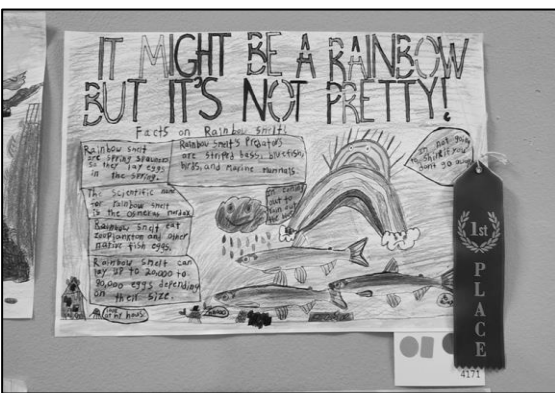 IT MIGHT BE A RAINBOW
BUT IT'S NOT PRETTY!
Facts on Rainbow Smelts
Rainbow smelt
are spring spawners
so they lay eggs
in the spring.
Rainbow Smelt's Predators
are striped bass, bluefish,
birds, and marine mammals
The scientific name
for rainbow smelt
is the osmerus mordax
Rainbow Smelt eat
zooplankton and other
native fish eggs.
Rainbow Smelt can
lay up to 20,000 to
80,000 eggs depending
on their size.
out to
I'm not going
to shine if you
don't go away
my house
1st
PLACE
4171